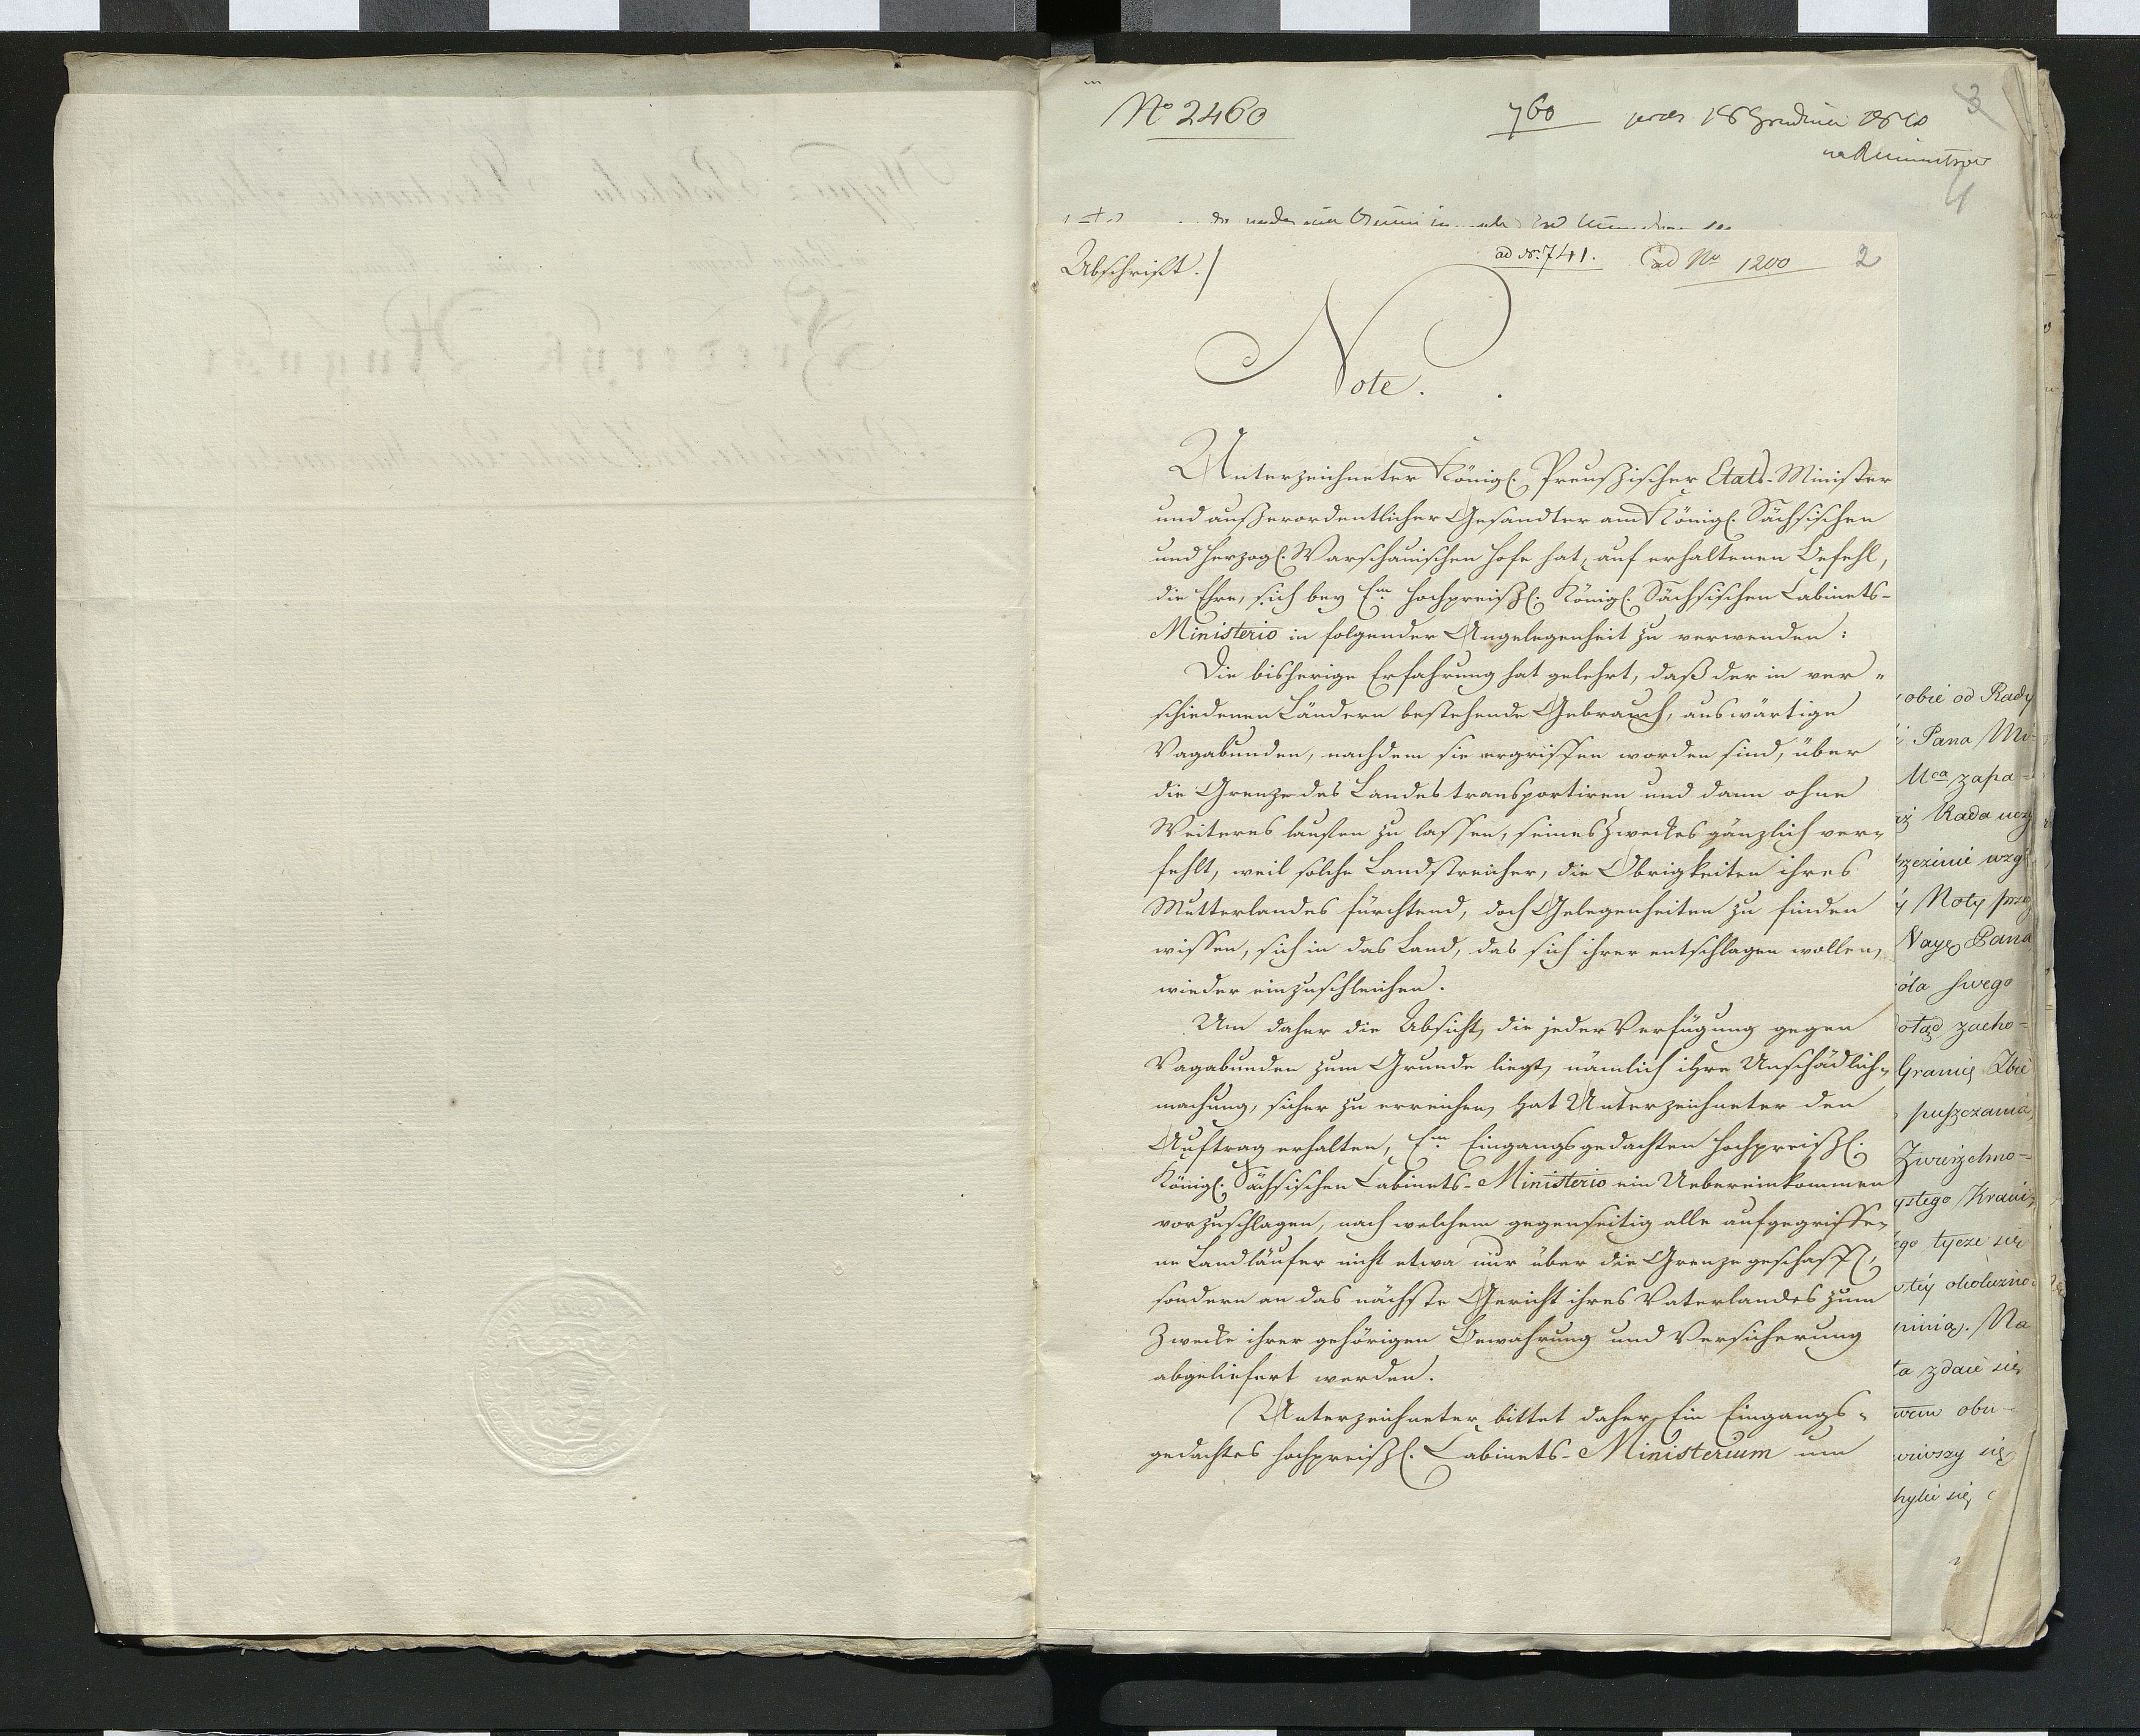 No 2460
760
18 Grudnia 1810
3
4
Abschrift./
ad No: 741.
ad No 1200
2
Note.
Unterzeichneter Königl. Preußischer Etats-Minister
und außerordentlicher Gesandter am Königl. Sächsischen
und Herzogl. Warschauischen Hofe hat, auf erhaltenen Befehl,
die Ehre, sich bey Em. Hochpreißl. Königl. Sächsischen Cabinets-
Ministerio in folgender Angelegenheit zu verwenden:
Die bisherige Erfahrung hat gelehrt, daß der in ver-
schiedenen Ländern bestehende Gebrauch, auswärtige
Vagabunden, nachdem sie ergriffen worden sind, über
die Grenze des Landes transportiren und dann ohne
Weiteres laufen zu lassen, seines Zweckes gänzlich ver-
fehlt, weil solche Landstreicher, die Obrigkeiten ihres
Mutterlandes fürchtend, doch Gelegenheiten zu finden
wissen, sich in das Land, das sich ihrer entschlagen wollen,
wieder einzuschleichen.
Um daher die Absicht, die jeder Verfügung gegen
Vagabunden zum Grunde liegt, nämlich ihre Unschädlich-
machung, sicher zu erreichen, hat Unterzeichneter den
Auftrag erhalten, Em. Eingangsgedachten Hochpreißl.
Königl. Sächsischen Cabinets-Ministerio ein Uebereinkommen
vorzuschlagen, nach welchem gegenseitig alle aufgegriffe-
ne Landläufer nicht etwa nur über die Grenze geschafft,
sondern an das nächste Gericht ihres Vaterlandes zum
Zwecke ihrer gehörigen Bewahrung und Versicherung
abgeliefert werden.
Unterzeichneter bittet daher Ein Eingangs-
gedachtes Hochpreißl. Cabinets-Ministerium um
obie od Rady
Pana Mi-
zapa-
Rada
Noty
Nayj Pana
swego
dotąd zacho-
Granię
puszczania,
Zwierzchno-
tycze się
Na
zdaie się
obu-
się